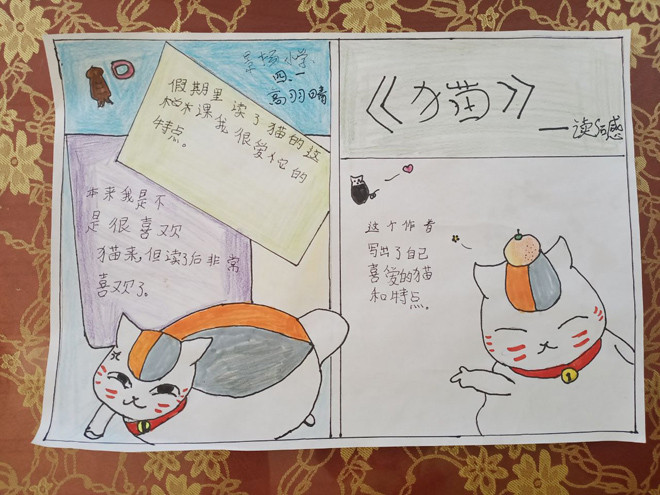 小学
四、一
高羽晴
假期里读了猫的这
课我很爱他的
特点。
本来我是不
是很喜欢
猫来,但读了后非常
喜欢了。
《猫》
——读后感
这个作者
写出了自己
喜爱的猫
和特点。